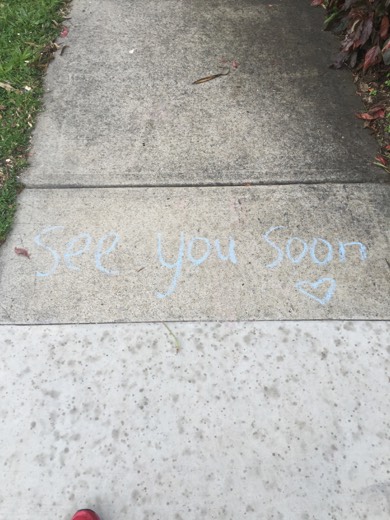 See you Soon